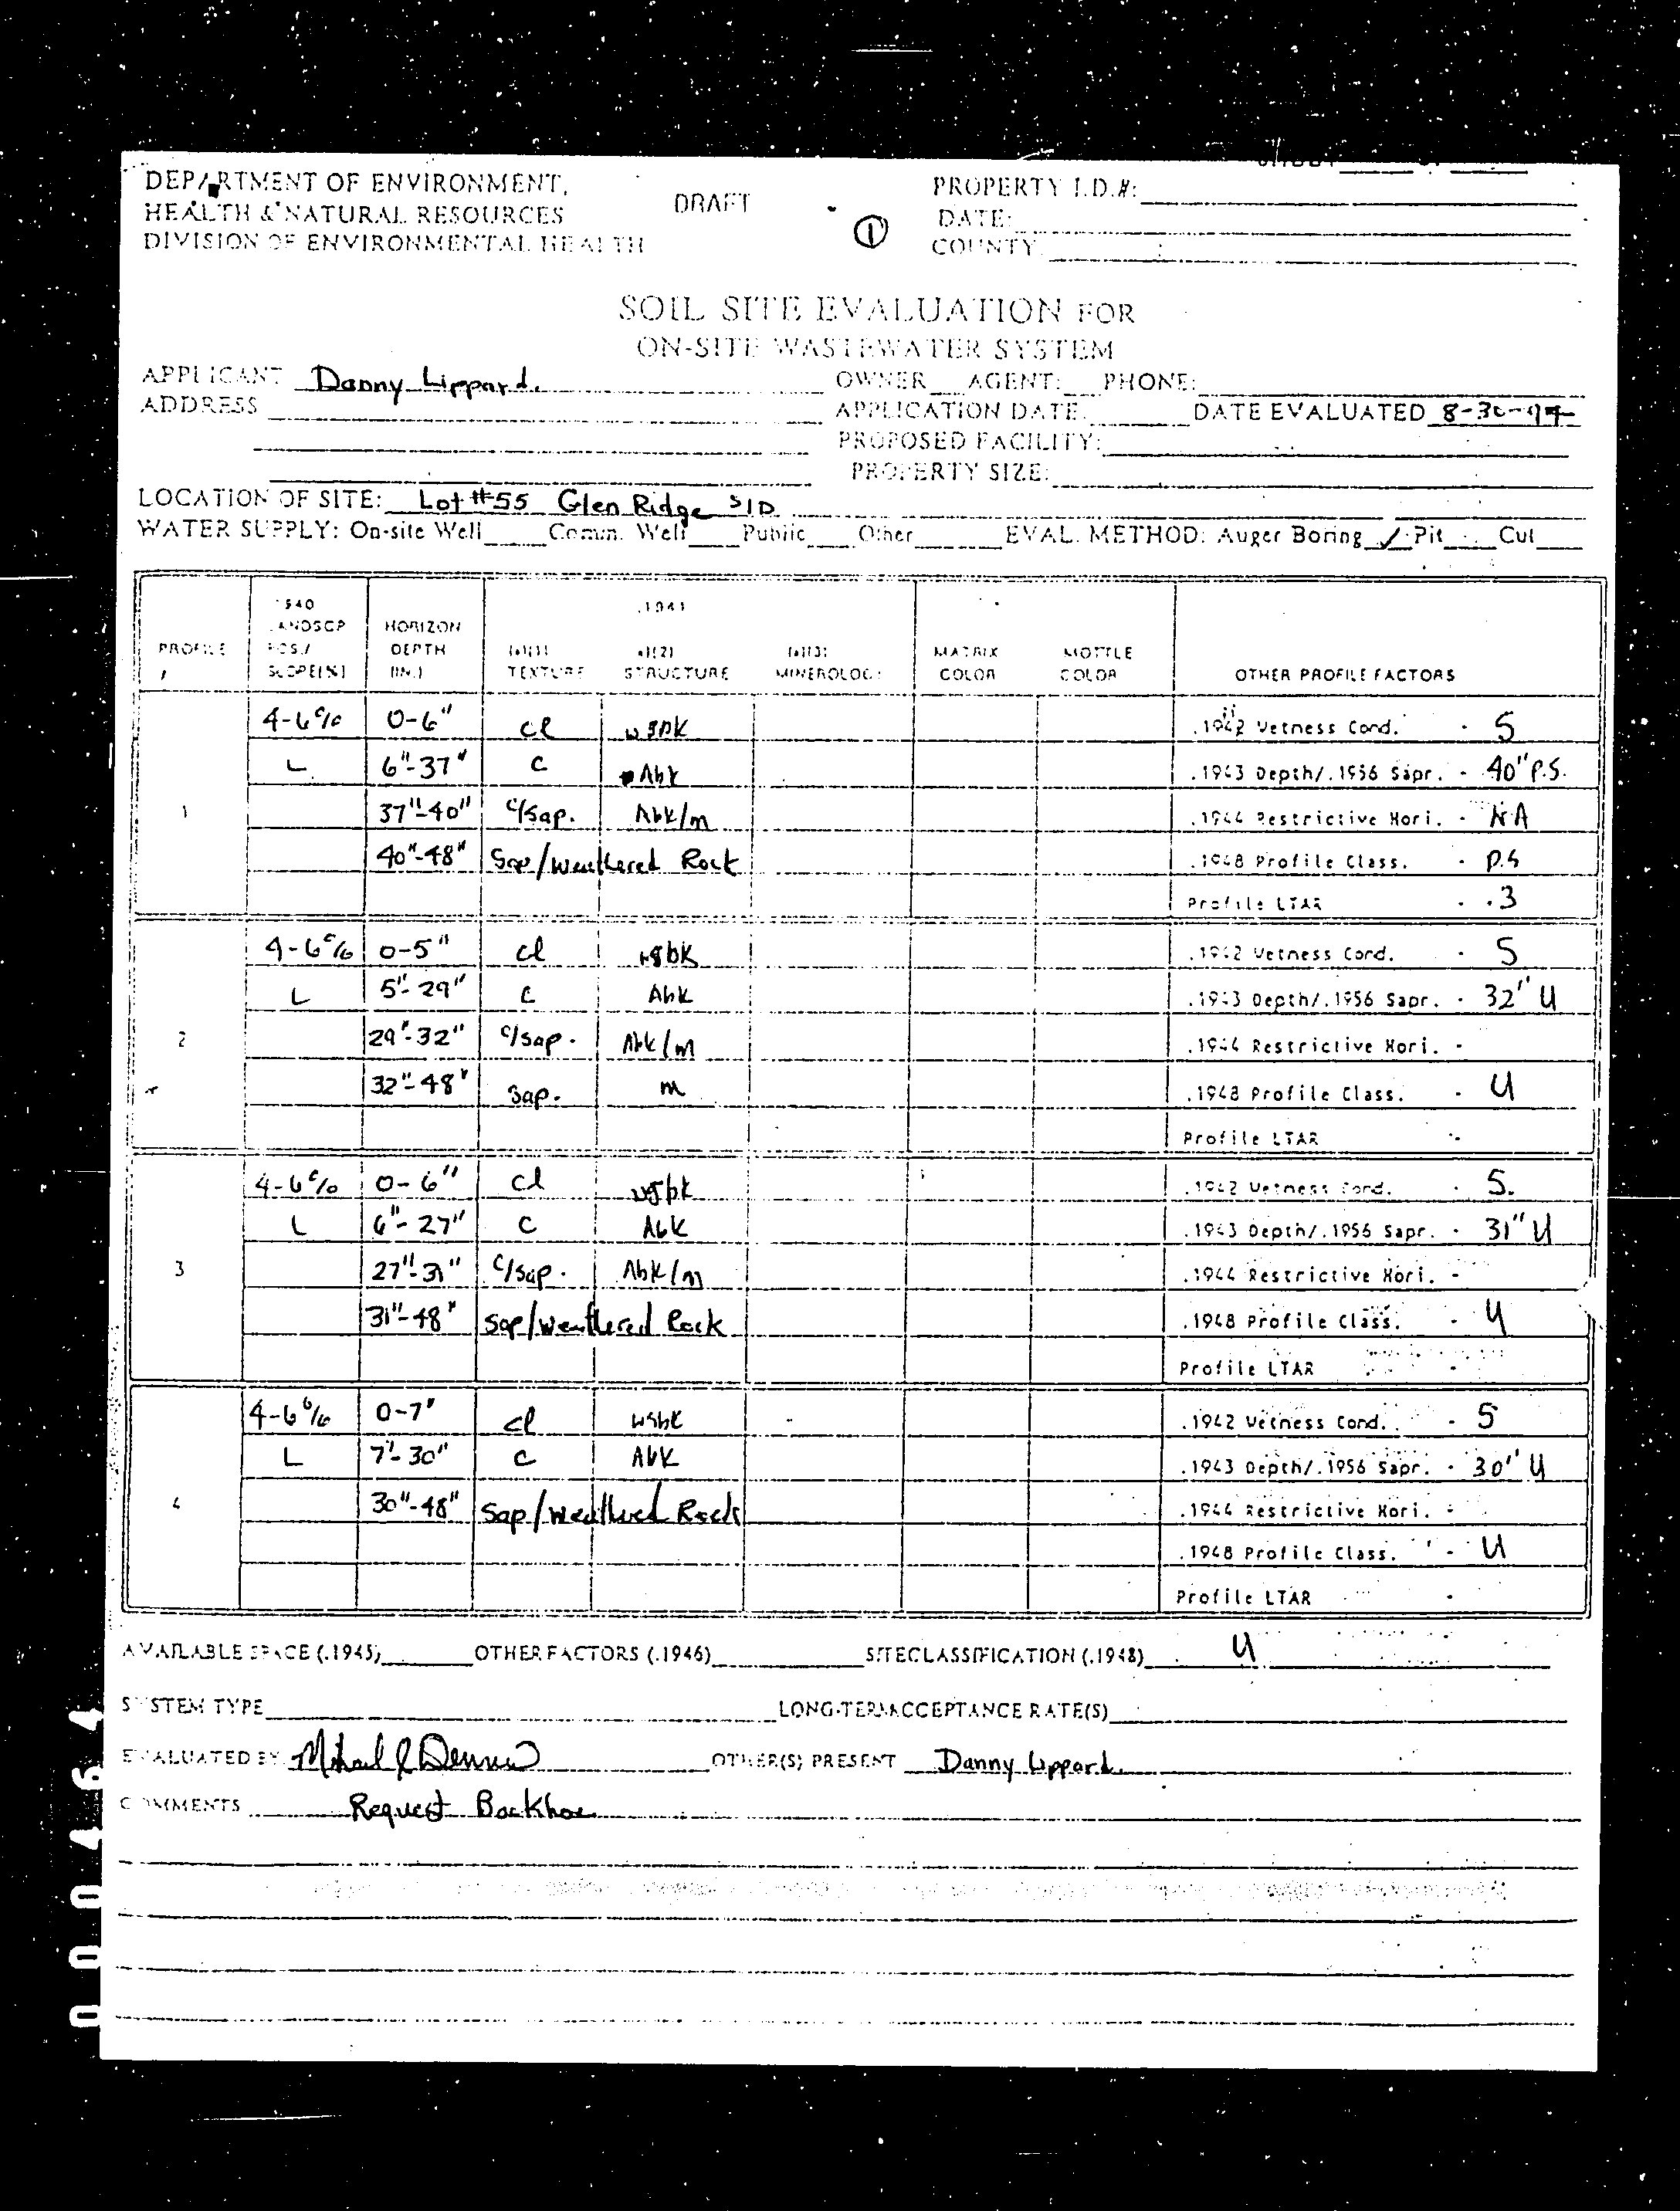 DEPARTMENT OF ENVIRONMENT,
HEALTH & NATURAL RESOURCES
DIVISION OF ENVIRONMENTAL HEALTH
DRAFT
1
PROPERTY I.D.#:
DATE:
COUNTY:
SOIL SITE EVALUATION FOR
ON-SITE WASTEWATER SYSTEM
APPLICANT Danny Lippard OWNER AGENT: PHONE:
ADDRESS APPLICATION DATE DATE EVALUATED 8-30-
PROPOSED FACILITY:
PROPERTY SIZE:
LOCATION OF SITE: Lot #55 Glen Ridge S/D
WATER SUPPLY: On-site Well Comm. Well Public Other EVAL. METHOD: Auger Boring ✓ Pit Cut
PROFILE LANDSCP POS./ HORIZON DEPTH (IN.) .1941 TEXTURE STRUCTURE MINEROLOGY MATRIX COLOR MOTTLE COLOR OTHER PROFILE FACTORS
4-6% 0-6" cl wsbk .1942 Wetness Cond. - S
L 6"-37" C Abk .1943 Depth/.1956 Sapr. - 40" P.S.
1 37"-40" C/Sap. Abk/m .1944 Restrictive Hori. - NA
40"-48" Sap/Weathered Rock .1948 Profile Class. - P.S
Profile LTAR - .3
4-6% 0-5" cl wsbk .1942 Wetness Cond. - S
L 5"-29" C Abk .1943 Depth/.1956 Sapr. - 32" U
2 29"-32" C/Sap. Abk/m .1944 Restrictive Hori. -
32"-48" Sap. m .1948 Profile Class. - U
Profile LTAR -
4-6% 0-6" cl wsbk .1942 Wetness Cond. - S.
L 6"-27" C Abk .1943 Depth/.1956 Sapr. - 31" U
3 27"-31" C/Sap. Abk/m .1944 Restrictive Hori. -
31"-48" Sap/Weathered Rock .1948 Profile Class. - U
Profile LTAR -
4-6% 0-7" cl wsbk .1942 Wetness Cond. - S
L 7"-30" C Abk .1943 Depth/.1956 Sapr. - 30" U
4 30"-48" Sap/Weathered Rock .1944 Restrictive Hori. -
.1948 Profile Class. - U
Profile LTAR -
AVAILABLE SPACE (.1945) OTHER FACTORS (.1946) SITE CLASSIFICATION (.1948) U
SYSTEM TYPE LONG-TERM ACCEPTANCE RATE(S)
EVALUATED BY: OTHER(S) PRESENT Danny Lippard
COMMENTS Request Backhoe
000464